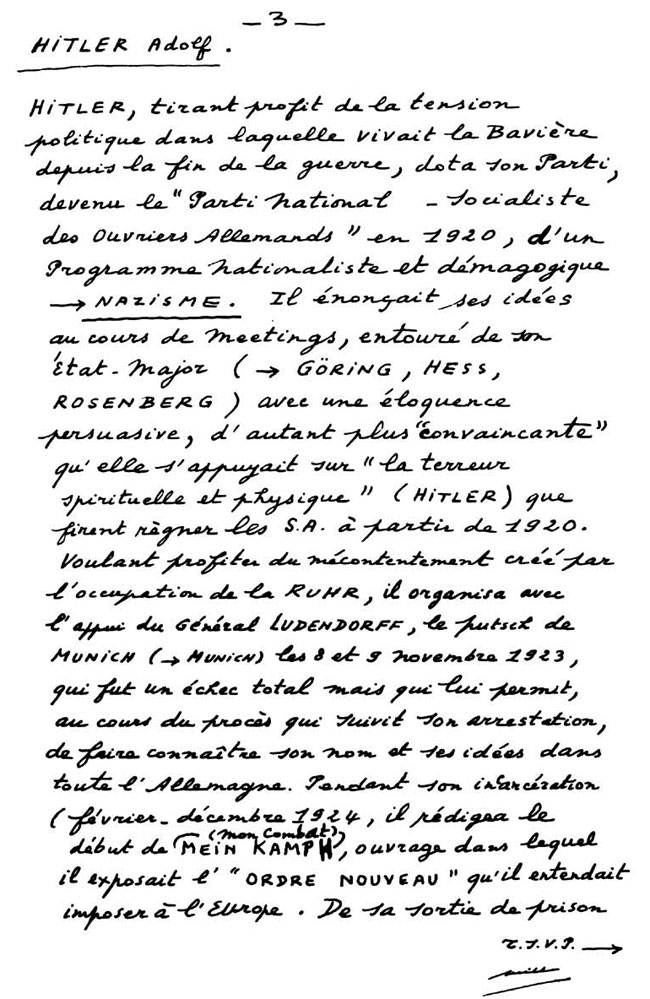 — 3 —
HITLER Adolf .
HITLER, tirant profit de la tension
politique dans laquelle vivait la Bavière
depuis la fin de la guerre, dota son Parti,
devenu le "Parti National - Socialiste
des Ouvriers Allemands" en 1920, d'un
Programme nationaliste et démagogique
→ NAZISME. Il énonçait ses idées
au cours de meetings, entouré de son
État-Major (→ GÖRING, HESS,
ROSENBERG) avec une éloquence
persuasive, d'autant plus "convaincante"
qu'elle s'appuyait sur "la terreur
spirituelle et physique" (HITLER) que
firent règner les S.A. à partir de 1920.
Voulant profiter du mécontentement créé par
l'occupation de la RUHR, il organisa avec
l'appui du Général LUDENDORFF, le putsch de
MUNICH (→ MUNICH) les 8 et 9 novembre 1923,
qui fut un échec total mais qui lui permit,
au cours du procès qui suivit son arrestation,
de faire connaître son nom et ses idées dans
toute l'Allemagne. Pendant son incarcération
(février - décembre 1924, il rédigea le
(mon Combat)
début de MEIN KAMPH, ouvrage dans lequel
il exposait l' "ORDRE NOUVEAU" qu'il entendait
imposer à l'Europe. De sa sortie de prison
T.S.V.P. →